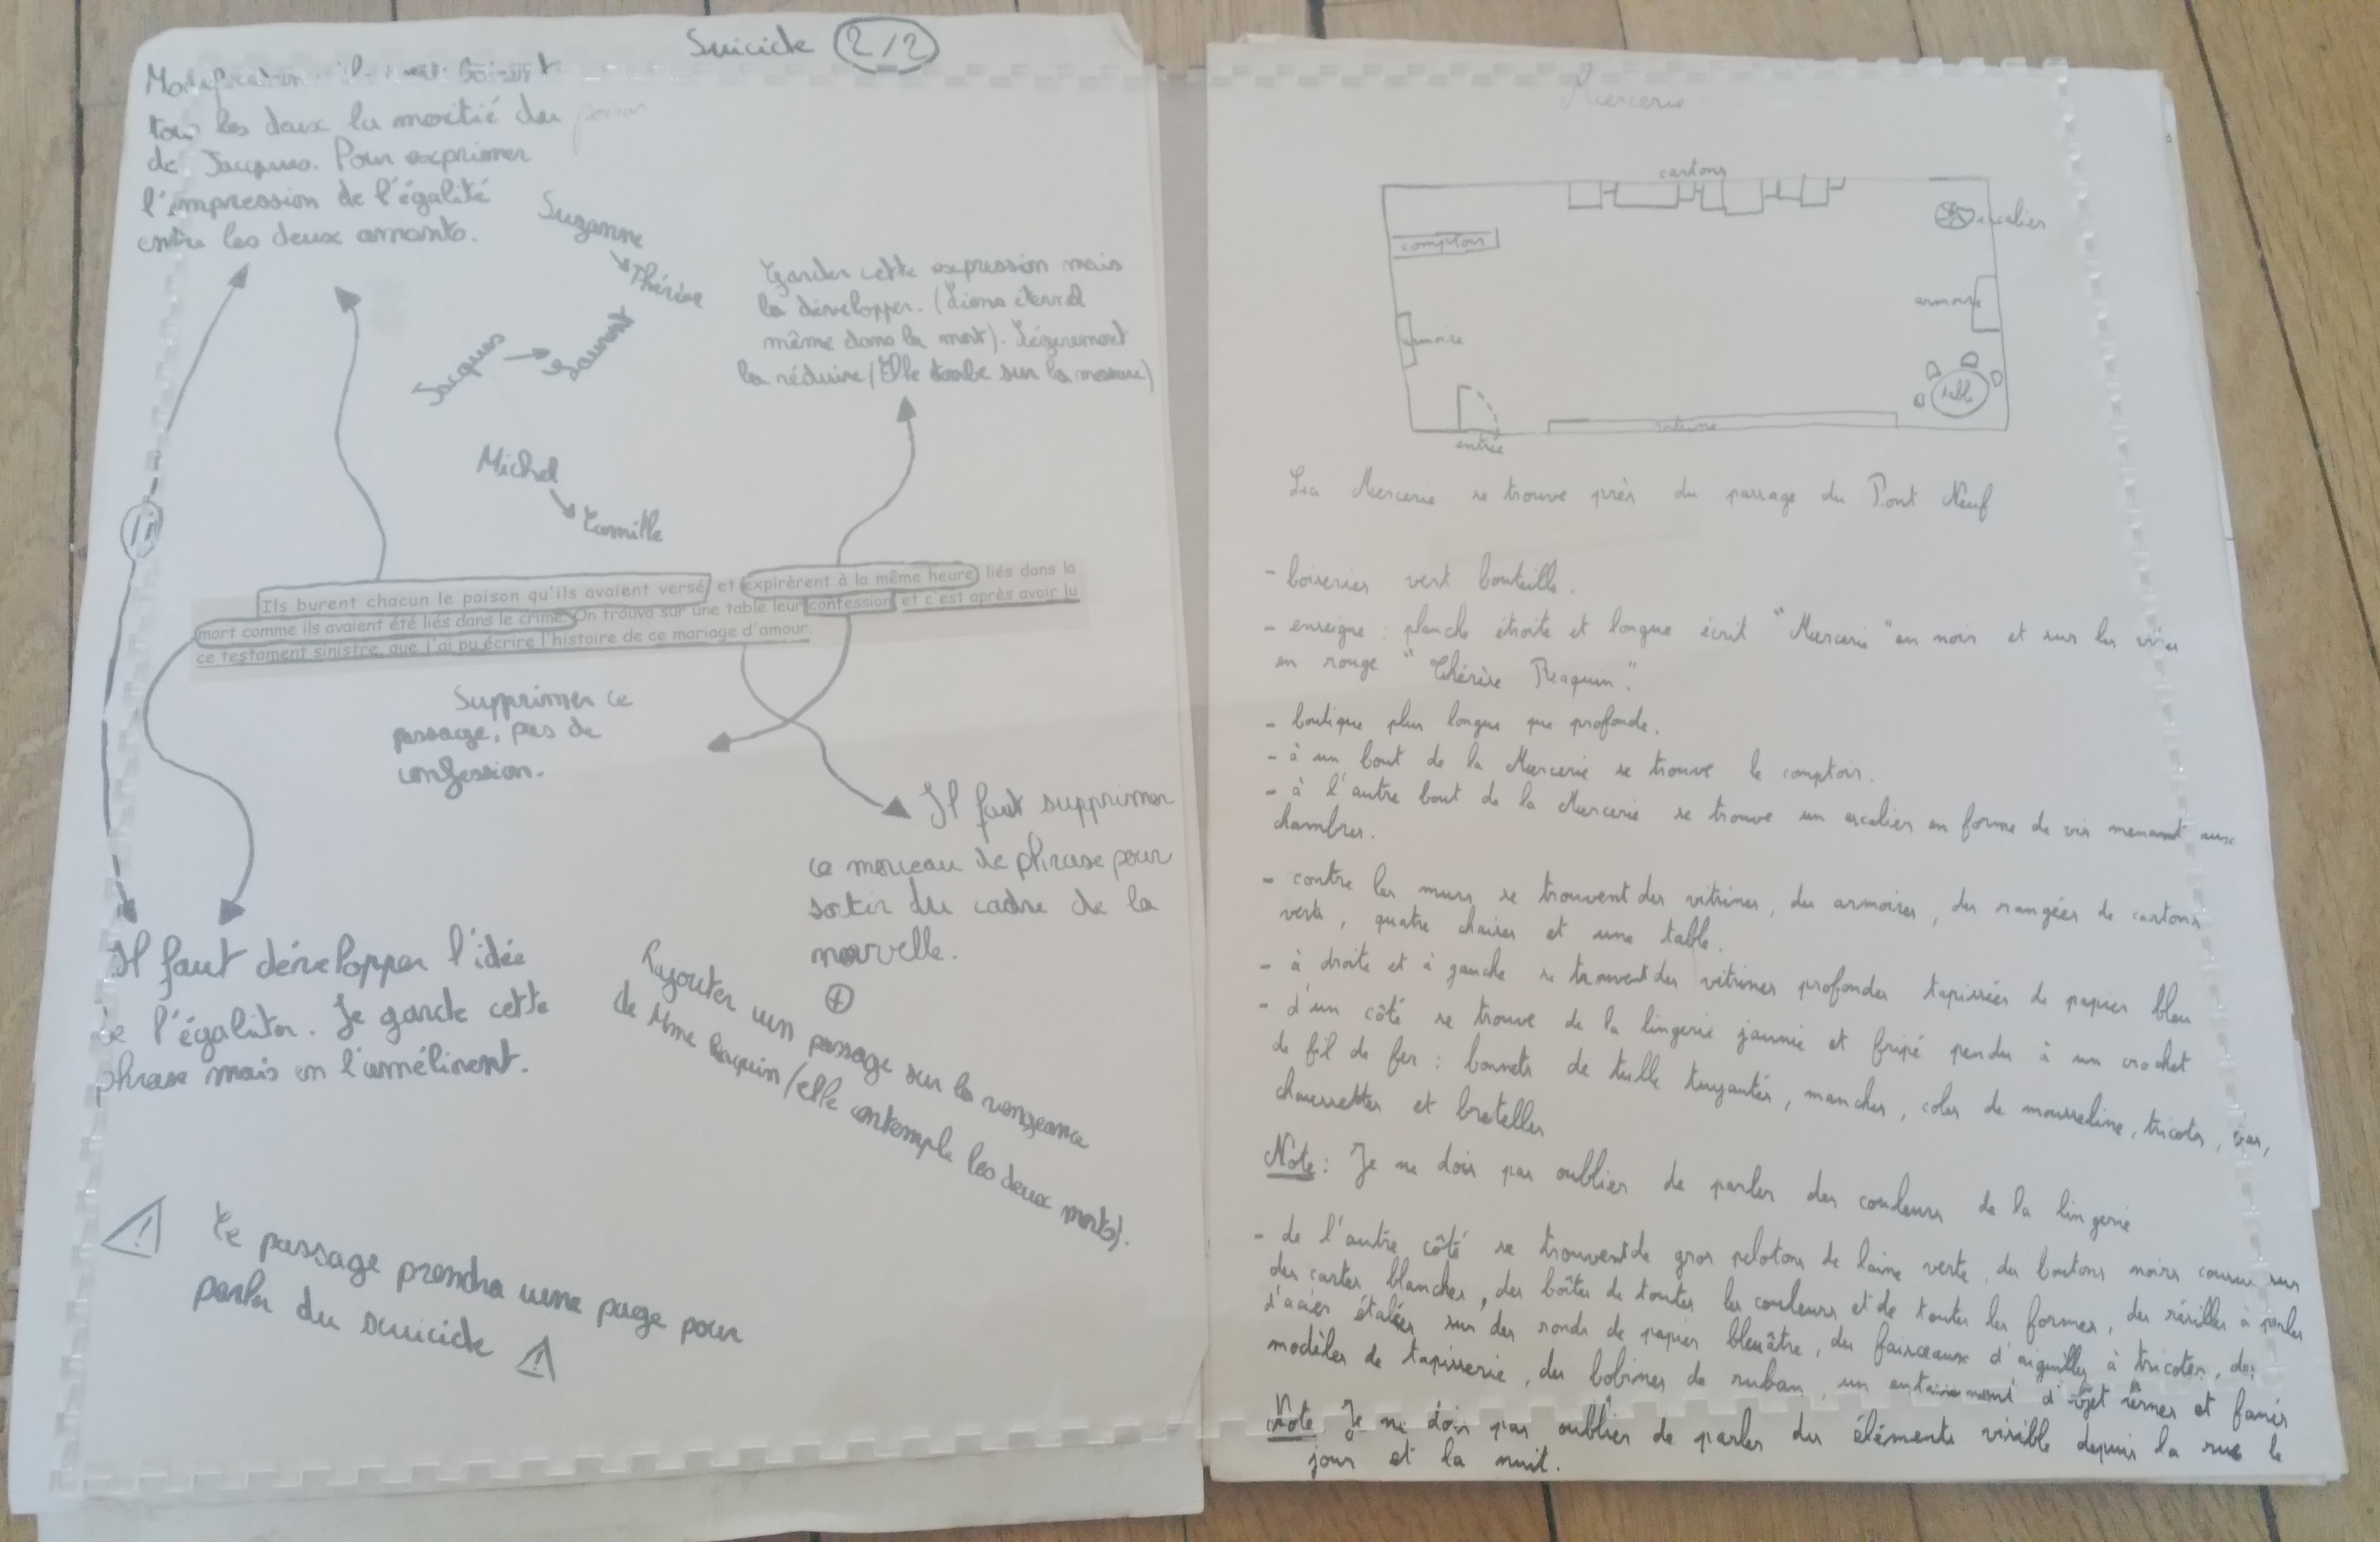 Suicide 2/2
tous les deux la moitié du poison
de Jacques. Pour exprimer
l'impression de l'égalité
entre les deux amants.
Suzanne
Thérèse
Jacques
Laurent
Michel
Camille
Garder cette expression mais
la développer. (Liens éternel
même dans la mort). Légèrement
la réduire (Elle tombe sur la masure)
Ils burent chacun le poison qu'ils avaient versé et expirèrent à la même heure, liés dans la
mort comme ils avaient été liés dans le crime. On trouva sur une table leur confession, et c'est après avoir lu
ce testament sinistre, que j'ai pu écrire l'histoire de ce mariage d'amour.
Supprimer ce
passage, pas de
confession.
Il faut supprimer
ce morceau de phrase pour
sortir du cadre de la
nouvelle.
+
Rajouter un passage sur la vengeance
de Mme Raquin (elle contemple les deux morts).
Il faut développer l'idée
de l'égaliter. Je garde cette
phrase mais en l'améliorent.
! Ce passage prendra une page pour
parler du suicide !
Mercerie
cartons
comptoir
escalier
armoire
armoire
table
entrée
vitrine
La Mercerie se trouve près du passage du Pont Neuf
- boiseries vert bouteille.
- enseigne : planche étroite et longue écrit "Mercerie" en noir et sur les vitres
en rouge "Thérèse Raquin".
- boutique plus longue que profonde.
- à un bout de la Mercerie se trouve le comptoir.
- à l'autre bout de la Mercerie se trouve un escalier en forme de vis menant aux
chambres.
- contre les murs se trouvent des vitrines, des armoires, des rangées de cartons
verts, quatre chaises et une table.
- à droite et à gauche se trouvent des vitrines profondes tapissées de papier bleu
- d'un côté se trouve de la lingerie jaunie et fripé pendu à un crochet
de fil de fer : bonnets de tulle tuyautés, manches, cols de mousseline, tricots, bas,
chaussettes et bretelles
Note : Je ne dois pas oublier de parler des couleurs de la lingerie
- de l'autre côté se trouvent de gros pelotons de laine verte, des boutons noirs cousus sur
des cartes blanches, des boîtes de toutes les couleurs et de toutes les formes, des résilles à perles
d'acier étalées sur des ronds de papier bleuâtre, des faisceaux d'aiguilles à tricoter, des
modèles de tapisserie, des bobines de ruban, un entassement d'objet ternes et fanés
Note Je ne dois pas oublier de parler des éléments visible depuis la rue le
jour et la nuit.